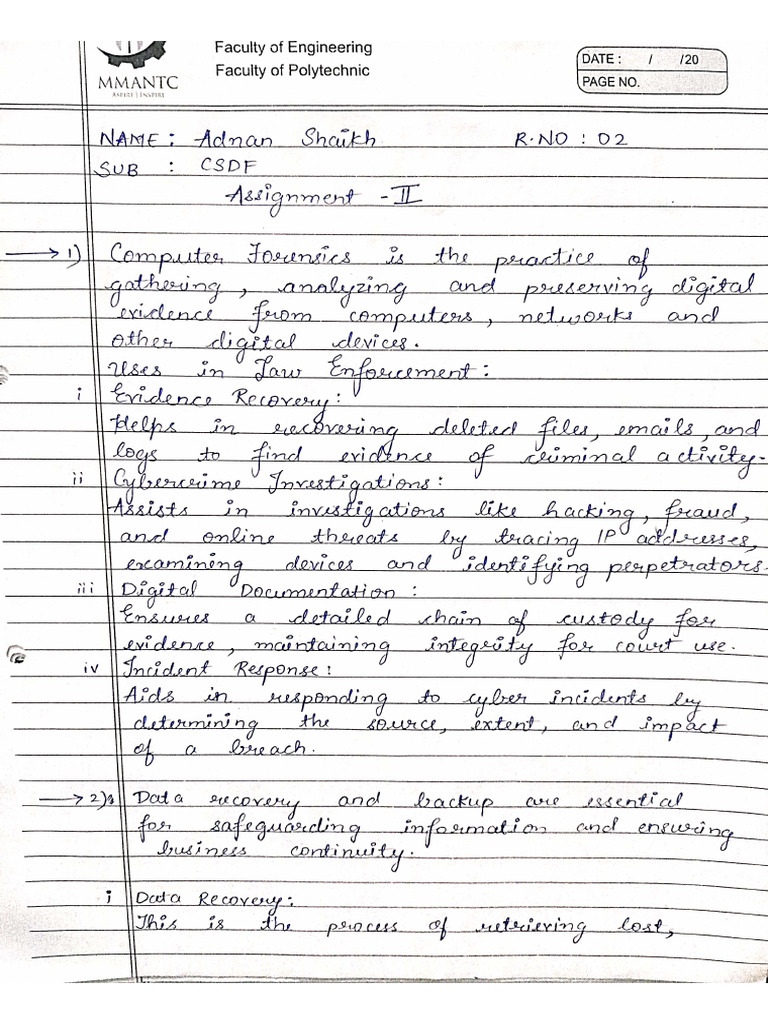 Faculty of Engineering
Faculty of Polytechnic
MMANTC
ASPIRE | INSPIRE
DATE : / /20
PAGE NO.
NAME : Adnan Shaikh R.NO : 02
SUB : CSDF
Assignment - II
→ 1) Computer Forensics is the practice of
gathering, analyzing and preserving digital
evidence from computers, networks and
other digital devices.
Uses in Law Enforcement :
i Evidence Recovery :
Helps in recovering deleted files, emails, and
logs to find evidence of criminal activity.
ii Cybercrime Investigations :
Assists in investigations like hacking, fraud,
and online threats by tracing IP addresses,
examining devices and identifying perpetrators.
iii Digital Documentation :
Ensures a detailed chain of custody for
evidence, maintaining integrity for court use.
iv Incident Response :
Aids in responding to cyber incidents by
determining the source, extent, and impact
of a breach.
→ 2) Data recovery and backup are essential
for safeguarding information and ensuring
business continuity.
i Data Recovery :
This is the process of retrieving lost,